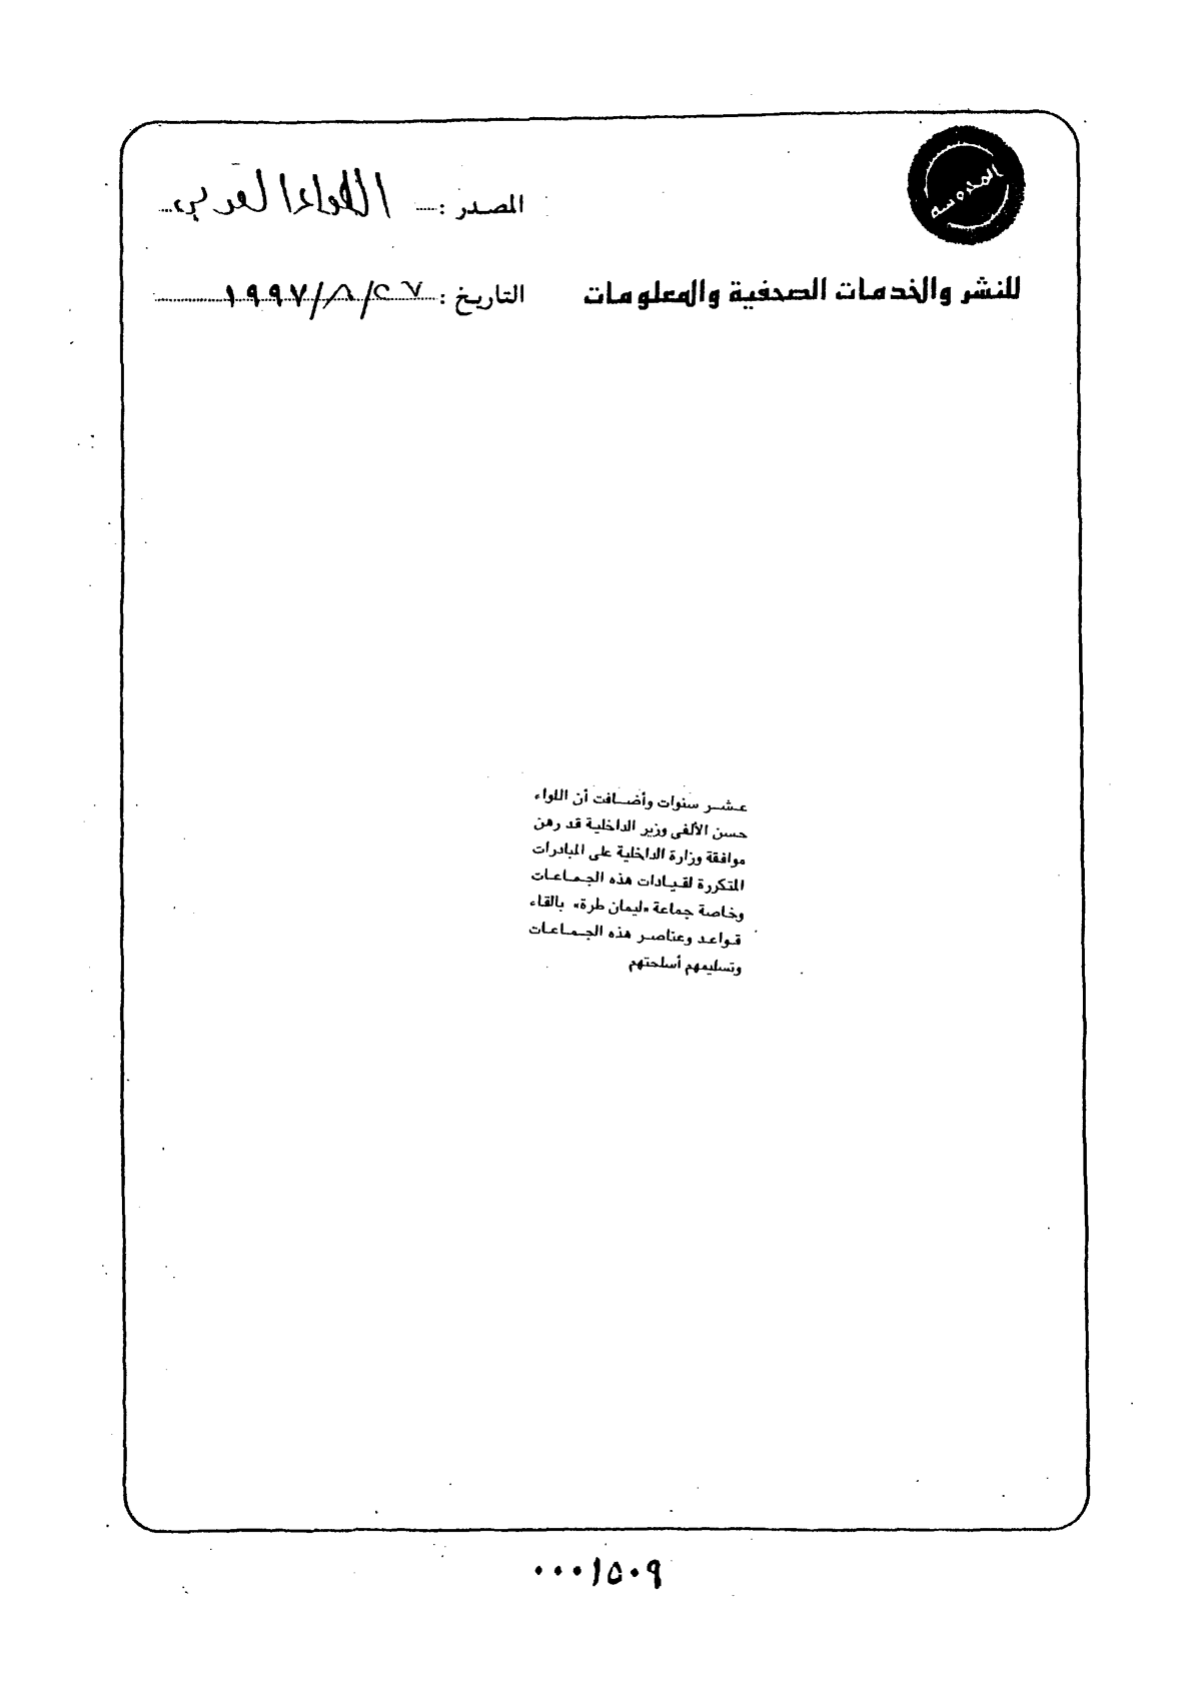 المحروسة
المصدر : اللواء العربي
للنشر والخدمات الصحفية والمعلومات
التاريخ : ١٩٩٧/٨/٢٧
عشر سنوات وأضافت أن اللواء
حسن الألفى وزير الداخلية قد رهن
موافقة وزارة الداخلية على المبادرات
المتكررة لقيادات هذه الجماعات
وخاصة جماعة «ليمان طرة» بالقاء
قواعد وعناصر هذه الجماعات
وتسليمهم أسلحتهم
٠٠٠١٥٠٩